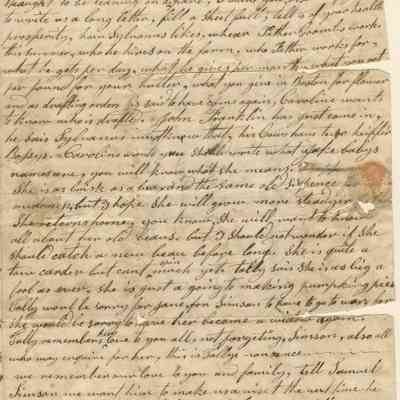 thought to be
to write us a long letter, fill a sheet full, tell us of your health
prosperity, how Sylvanus likes, whear Father works
this summer, who he hires on the farm, who Father works for,
what he gets per day, what he gives per month, what you
per pound for your butter, what you give in Boston for flower
and as drafting orders is said to have come again, Caroline wants
to know who is drafted. John Franklin has just came in,
he sais Sylvanus must know that his Cow has to go
Bossy. Caroline wants you should write what
names are, you will know what she means
She is as brisk as a bee and the same old
but I hope she will grow more steady
She returns, you know she will want to know
all about her old beaus, but I should not wonder if she
should catch a new beau before long. She is quite a
but cant much yet. Sally sais she is as big a
fool as ever, she is just a going to making pumpking pies
Sally wont be sorry for Jane, for Simson to have to go to war for
she would be sorry to have her became a widow again.
Sally remembers her love to you all, not forgeting Simson, also all
who may enquire for her, this is Sallys
we remember our love to you and family, tell Samuel
Simson we want him to make us a visit the next time he